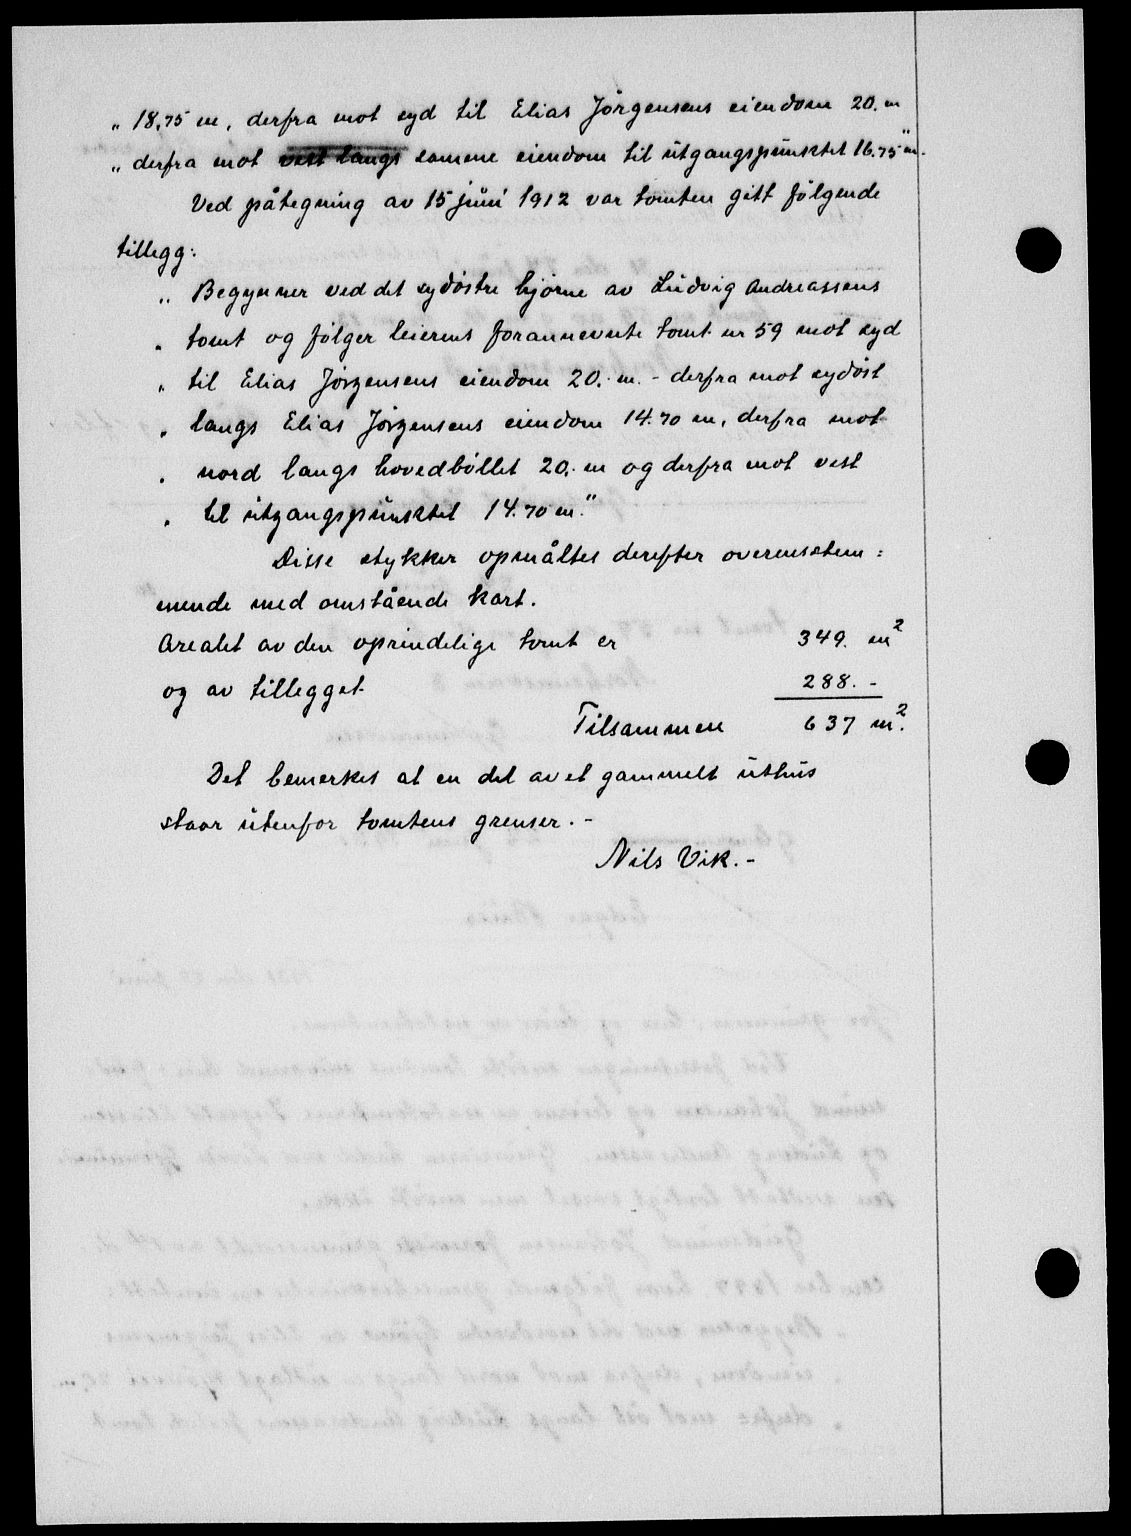 „ 18,75 m, derfra mot syd til Elias Jörgensens eiendom 20. m
„ derfra mot vest langs samme eiendom til utgangspunktet 16.75 m."
Ved påtegning av 15 juni 1912 var tomten gitt følgende
tillegg:
„ Begynner ved det sydöstre hjörne av Ludvig Andreassens
„ tomt og fölger leierens forannevnte tomt nr 59 mot syd
„ til Elias Jörgensens eiendom 20. m. - derfra mot sydöst
„ langs Elias Jörgensens eiendom 14.70 m, derfra mot
„ nord langs hovedböllet 20. m og derfra mot vest
„ til utgangspunktet 14.70 m."
Disse stykker opmåltes derefter overensstem=
mende med omstående kart.
Arealet av den oprindelige tomt er 349. m²
og av tillegget 288. -
Tilsammen 637 m².
Det bemerkes at en del av et gammelt uthus
staar utenfor tomtens grenser. -
Nils Vik. -